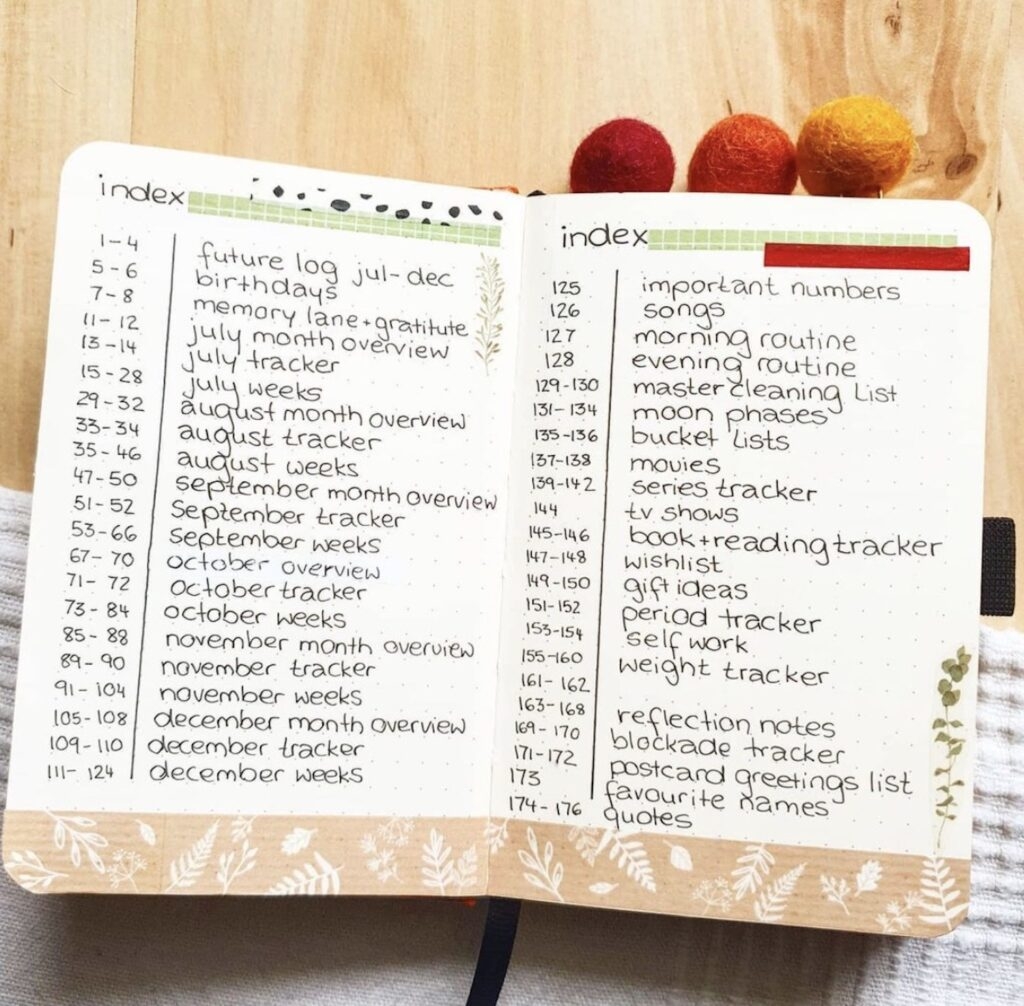 index
1-4 future log jul-dec
5-6 birthdays
7-8 memory lane+gratitute
11-12 july month overview
13-14 july tracker
15-28 july weeks
29-32 august month overview
33-34 august tracker
35-46 august weeks
47-50 september month overview
51-52 September tracker
53-66 September weeks
67-70 october overview
71-72 october tracker
73-84 october weeks
85-88 november month overview
89-90 november tracker
91-104 november weeks
105-108 december month overview
109-110 december tracker
111-124 december weeks
index
125 important numbers
126 songs
127 morning routine
128 evening routine
129-130 master cleaning List
131-134 moon phases
135-136 bucket lists
137-138 movies
139-142 series tracker
144 tv shows
145-146 book+reading tracker
147-148 wishlist
149-150 gift ideas
151-152 period tracker
153-154 self work
155-160 weight tracker
161-162
163-168 reflection notes
169-170 blockade tracker
171-172 postcard greetings list
173 favourite names
174-176 quotes